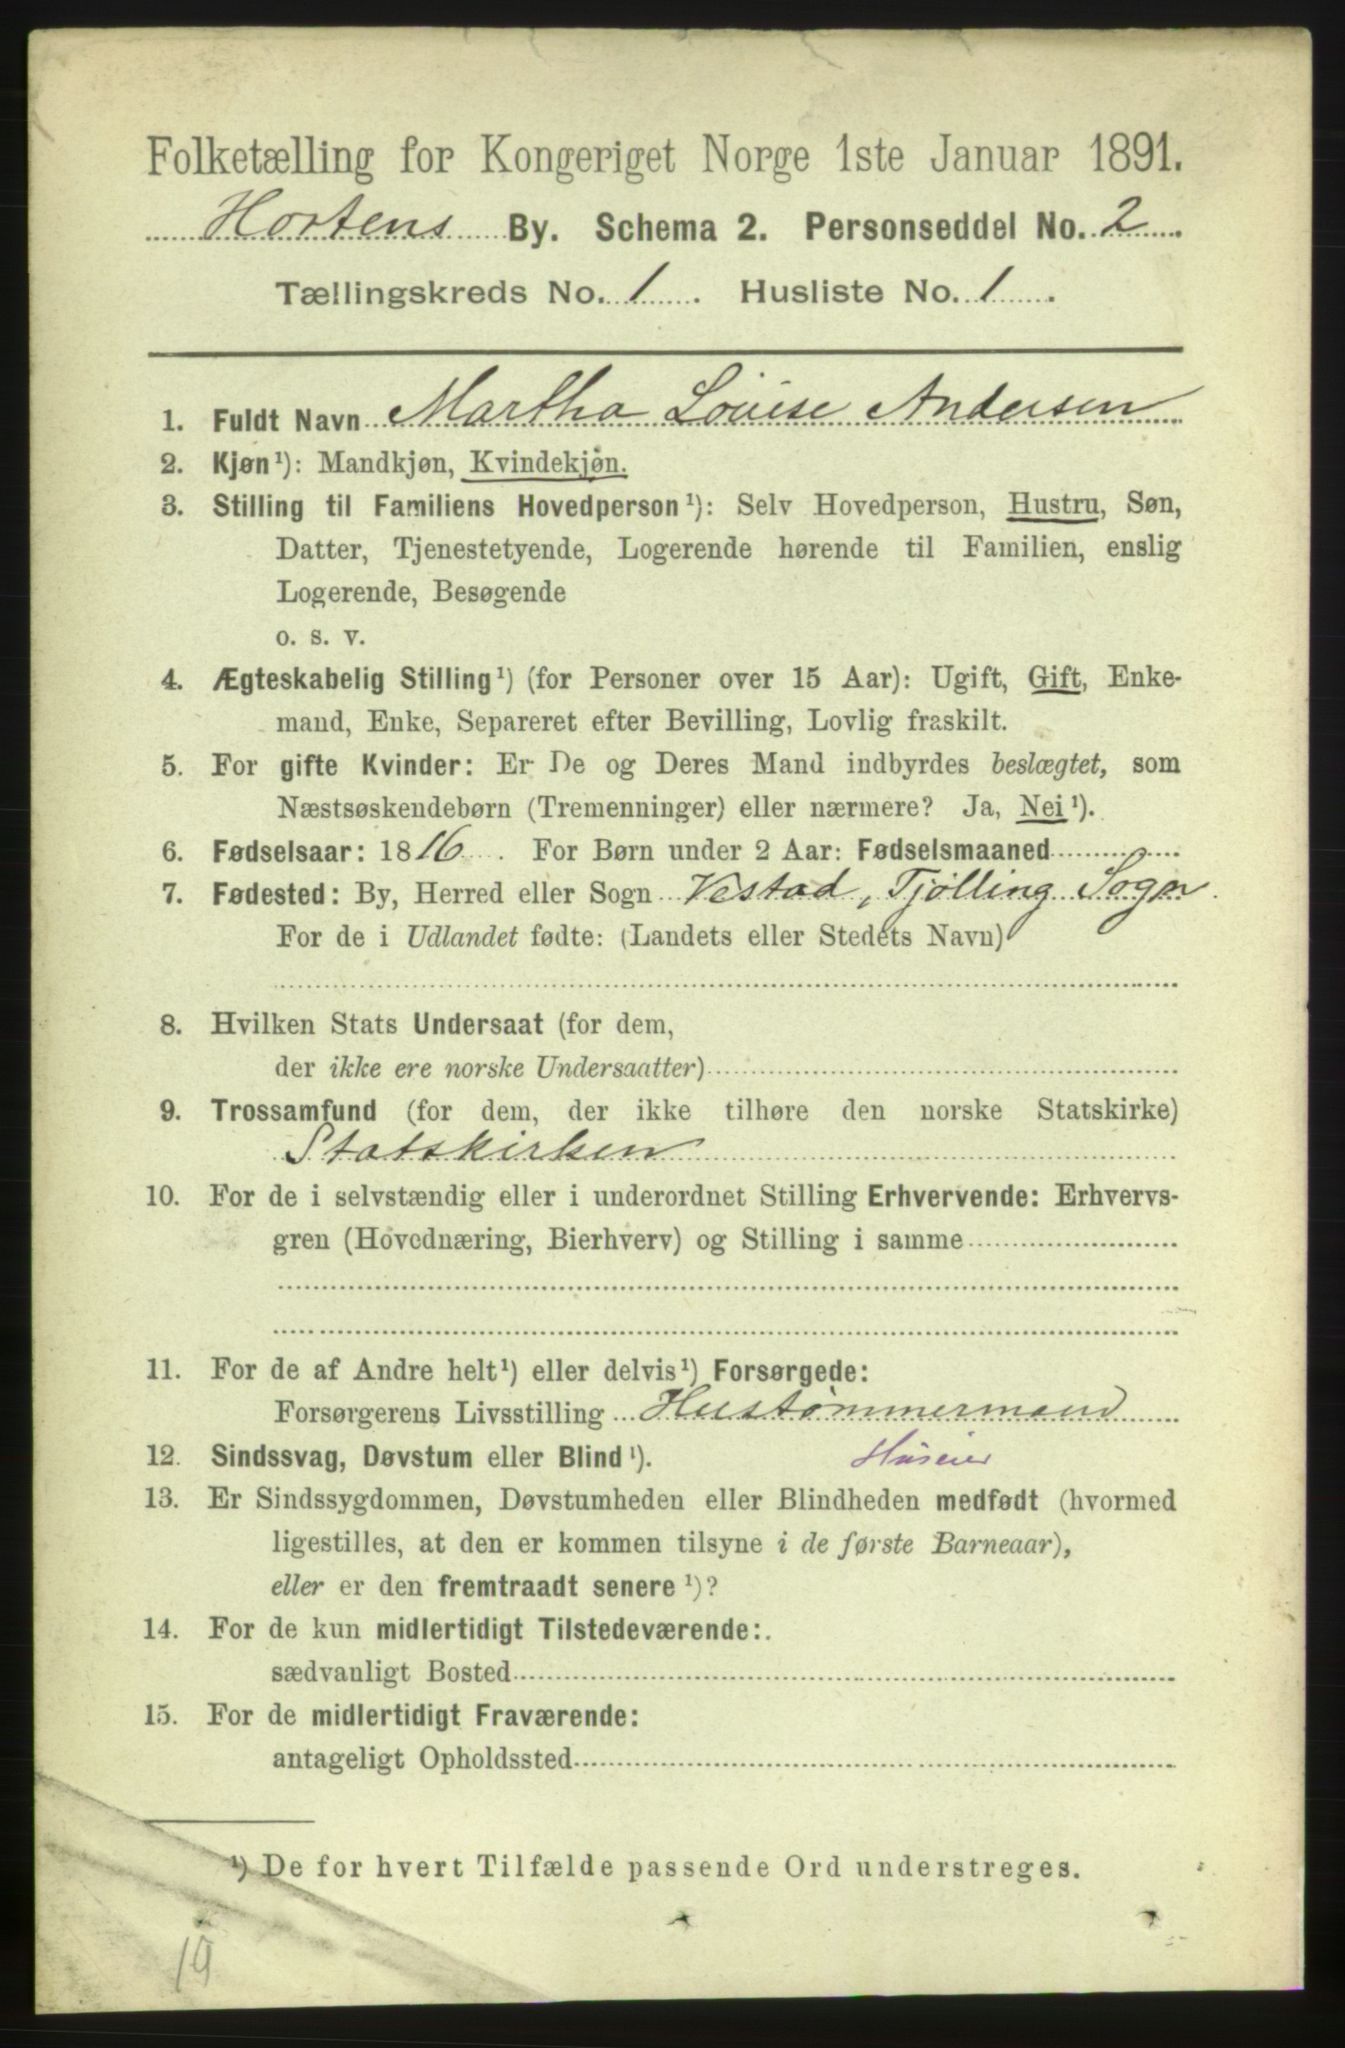 Folketælling for Kongeriget Norge 1ste Januar 1891.
Hortens By. Schema 2. Personseddel No. 2
Tællingskreds No. 1. Husliste No. 1.
1. Fuldt Navn Martha Louise Andersen
2. Kjøn¹): Mandkjøn, Kvindekjøn.
3. Stilling til Familiens Hovedperson¹): Selv Hovedperson, Hustru, Søn,
Datter, Tjenestetyende, Logerende hørende til Familien, enslig
Logerende, Besøgende
o. s. v.
4. Ægteskabelig Stilling¹) (for Personer over 15 Aar): Ugift, Gift, Enke-
mand, Enke, Separeret efter Bevilling, Lovlig fraskilt.
5. For gifte Kvinder: Er De og Deres Mand indbyrdes beslægtet, som
Næstsøskendebørn (Tremenninger) eller nærmere? Ja, Nei¹).
6. Fødselsaar: 1816. For Børn under 2 Aar: Fødselsmaaned
7. Fødested: By, Herred eller Sogn Vestad, Tjølling Sogn.
For de i Udlandet fødte: (Landets eller Stedets Navn)
8. Hvilken Stats Undersaat (for dem,
der ikke ere norske Undersaatter)
9. Trossamfund (for dem, der ikke tilhøre den norske Statskirke)
Statskirken
10. For de i selvstændig eller i underordnet Stilling Erhvervende: Erhvervs-
gren (Hovednæring, Bierhverv) og Stilling i samme
11. For de af Andre helt¹) eller delvis¹) Forsørgede:
Forsørgerens Livsstilling Hustømmermand
12. Sindssvag, Døvstum eller Blind¹). Huseier
13. Er Sindssygdommen, Døvstumheden eller Blindheden medfødt (hvormed
ligestilles, at den er kommen tilsyne i de første Barneaar),
eller er den fremtraadt senere¹)?
14. For de kun midlertidigt Tilstedeværende:
sædvanligt Bosted
15. For de midlertidigt Fraværende:
antageligt Opholdssted
¹) De for hvert Tilfælde passende Ord understreges.
19